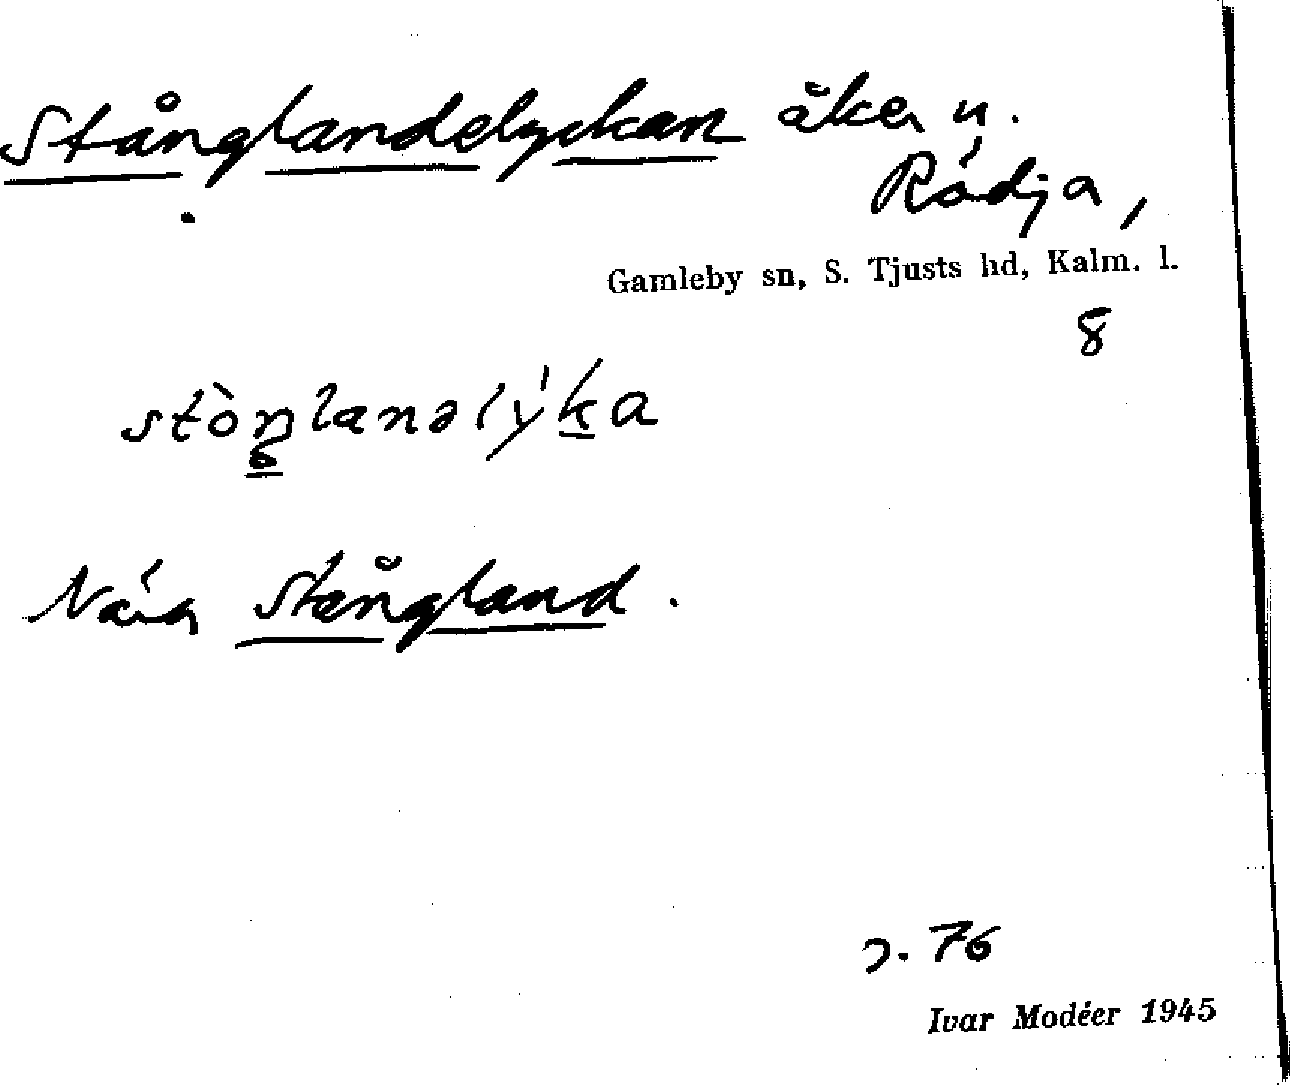 Stånglandelyckan åker u.
Rödja,
Gamleby sn, S. Tjusts hd, Kalm. l.
8
Nära Stångland.
s. 76
Ivar Modéer 1945